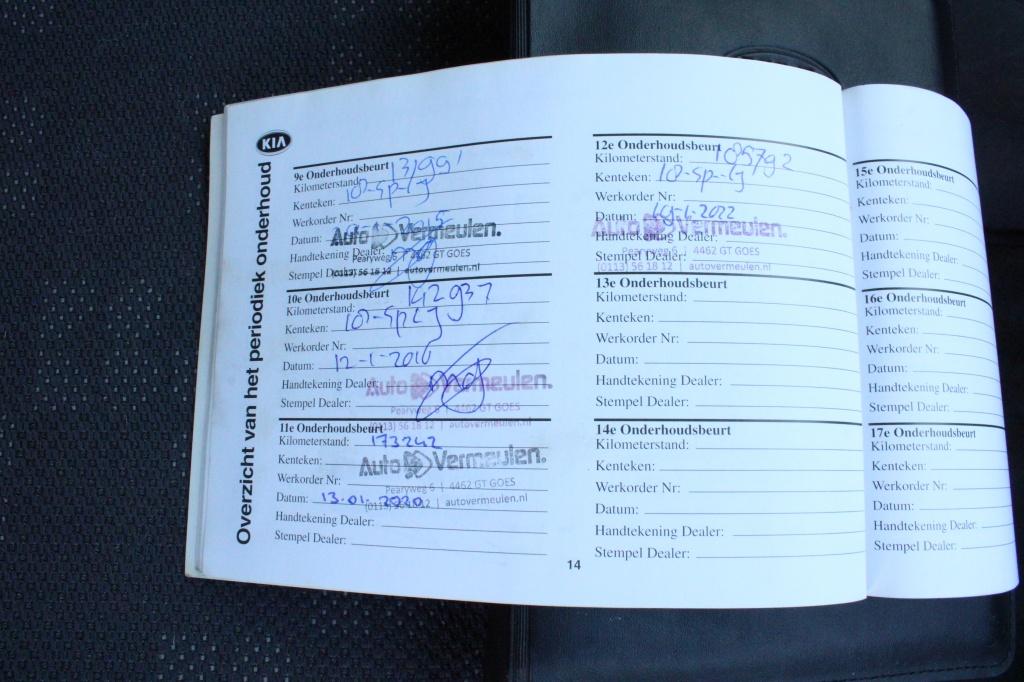 KIA
Overzicht van het periodiek onderhoud
9e Onderhoudsbeurt
Kilometerstand: 131991
Kenteken: 10-SP-LJ
Werkorder Nr:
Datum: 2015
Handtekening Dealer:
Stempel Dealer:
Auto Vermeulen.
Pearyweg 6 | 4462 GT GOES
(0113) 56 18 12 | autovermeulen.nl
10e Onderhoudsbeurt
Kilometerstand: 142937
Kenteken: 10-SP-LJ
Werkorder Nr:
Datum: 12-1-2016
Handtekening Dealer:
Stempel Dealer:
Auto Vermeulen.
Pearyweg 6 | 4462 GT GOES
(0113) 56 18 12 | autovermeulen.nl
11e Onderhoudsbeurt
Kilometerstand: 173242
Kenteken:
Werkorder Nr:
Datum: 13-01-2020
Handtekening Dealer:
Stempel Dealer:
Auto Vermeulen.
Pearyweg 6 | 4462 GT GOES
(0113) 56 18 12 | autovermeulen.nl
12e Onderhoudsbeurt
Kilometerstand: 185792
Kenteken: 10-SP-LJ
Werkorder Nr:
Datum: 19-1-2022
Handtekening Dealer:
Stempel Dealer:
Auto Vermeulen.
Pearyweg 6 | 4462 GT GOES
(0113) 56 18 12 | autovermeulen.nl
13e Onderhoudsbeurt
Kilometerstand:
Kenteken:
Werkorder Nr:
Datum:
Handtekening Dealer:
Stempel Dealer:
14e Onderhoudsbeurt
Kilometerstand:
Kenteken:
Werkorder Nr:
Datum:
Handtekening Dealer:
Stempel Dealer:
14
15e Onderhoudsbeurt
Kilometerstand:
Kenteken:
Werkorder Nr:
Datum:
Handtekening Dealer:
Stempel Dealer:
16e Onderhoudsbeurt
Kilometerstand:
Kenteken:
Werkorder Nr:
Datum:
Handtekening Dealer:
Stempel Dealer:
17e Onderhoudsbeurt
Kilometerstand:
Kenteken:
Werkorder Nr:
Datum:
Handtekening Dealer:
Stempel Dealer: